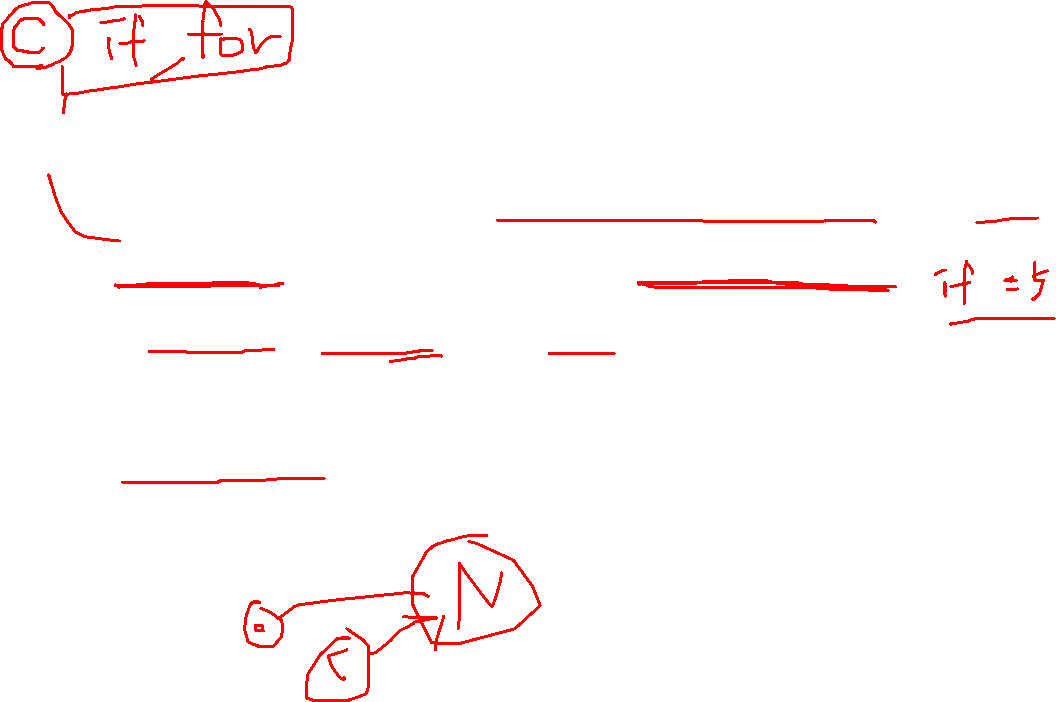 C if for
if = 5
N